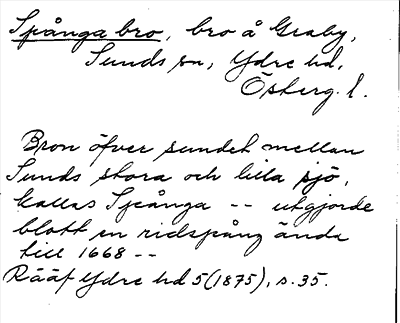 Spånga bro, bro å Graby,
Sunds sn, Ydre hd,
Österg. l.
Bron öfver sundet mellan
Sunds stora och lilla sjö,
kallas Spånga -- utgjorde
blott en ridspång ända
till 1668 --
Rääf Ydre hd 5 (1875), s. 35.